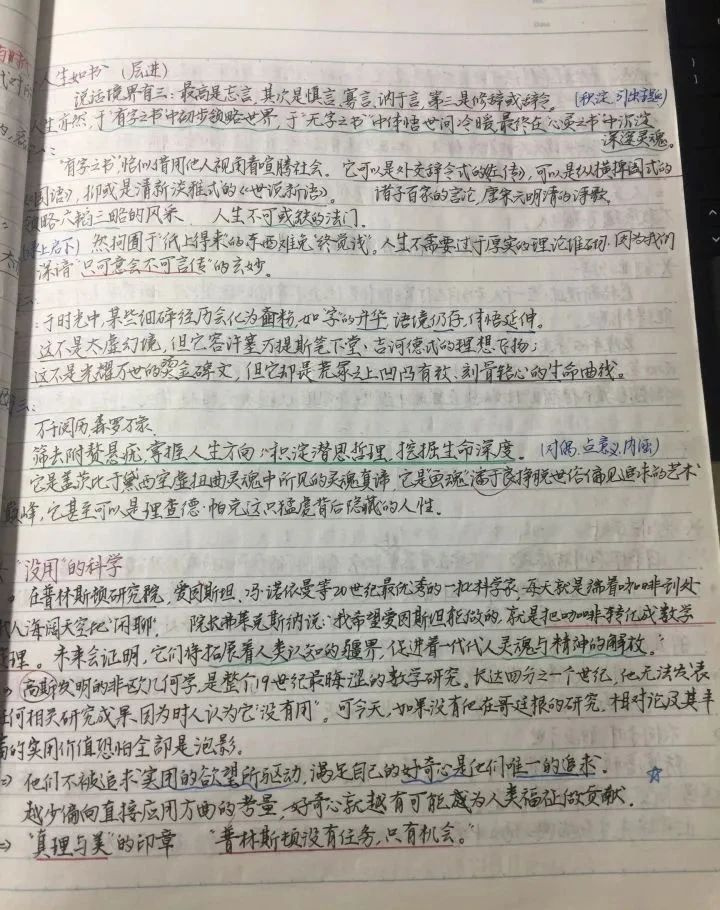 人生如书 (层进)
说话境界有三:最高是忘言,其次是慎言、寡言、讷于言,第三是修辞或辞令。 (积淀,引出主题)
人生亦然,于“有字之书”中初步领略世界,于“无字之书”中体悟世间冷暖,最终在“心灵之书”中沉淀
深邃灵魂。
“有字之书”恰似借用他人视阈看喧腾社会。它可以是外交辞令式的《左传》,可以是纵横捭阖式的
《国语》,抑或是清新淡雅式的《世说新语》。 诸子百家的言论,唐宋元明清的诗歌,
领略六韬三略的风采 人生不可或缺的法门.
(承上启下) 然拘囿于“纸上得来”的东西难免“终觉浅”。人生不需要过于厚实的理论堆砌,因为我们
深谙“只可意会不可言传”的玄妙。
于时光中,某些细碎经历会化为齑粉,如“字”的升华,语境仍存,体悟延伸。
这不是太虚幻境,但它容许塞万提斯笔下堂·吉诃德式的理想飞扬;
这不是光耀万世的烫金碑文,但它却是荒冢之上凹凸有致、刻骨铭心的生命曲线。
三:
万千阅历,森罗万象.
筛去附赘悬疣,掌握人生方向;积淀潜思哲理,挖掘生命深度。 (对偶,点意义内涵)
它是盖茨比于黛西空虚扭曲灵魂中所见的灵魂真谛,它是“画魂”潘玉良挣脱世俗偏见追求的艺术
巅峰,它甚至可以是理查德·帕克这只猛虎背后隐藏的人性。
“没用”的科学
在普林斯顿研究院,爱因斯坦、冯·诺依曼等20世纪最优秀的一批科学家,每天就是端着咖啡到处
找人海阔天空地“闲聊”。 院长弗莱克斯纳说:“我希望爱因斯坦能做的,就是把咖啡转化成数学
定理。未来会证明,它们将拓展着人类认知的疆界,促进着一代代人灵魂与精神的解放。”
⇒ 高斯发明的非欧几何学,是整个19世纪最晦涩的数学研究。长达四分之一个世纪,他无法发表
任何相关研究成果,因为时人认为它“没有用”。可今天,如果没有他在哥廷根的研究,相对论及其丰
富的实用价值恐怕全部是泡影。
⇒ 他们不被追求实用的欲望所驱动,满足自己的好奇心是他们唯一的追求. ☆
越少偏向直接应用方面的考量,好奇心就越有可能成为人类福祉做贡献.
⇒ “真理与美”的印章 “普林斯顿没有任务,只有机会。”